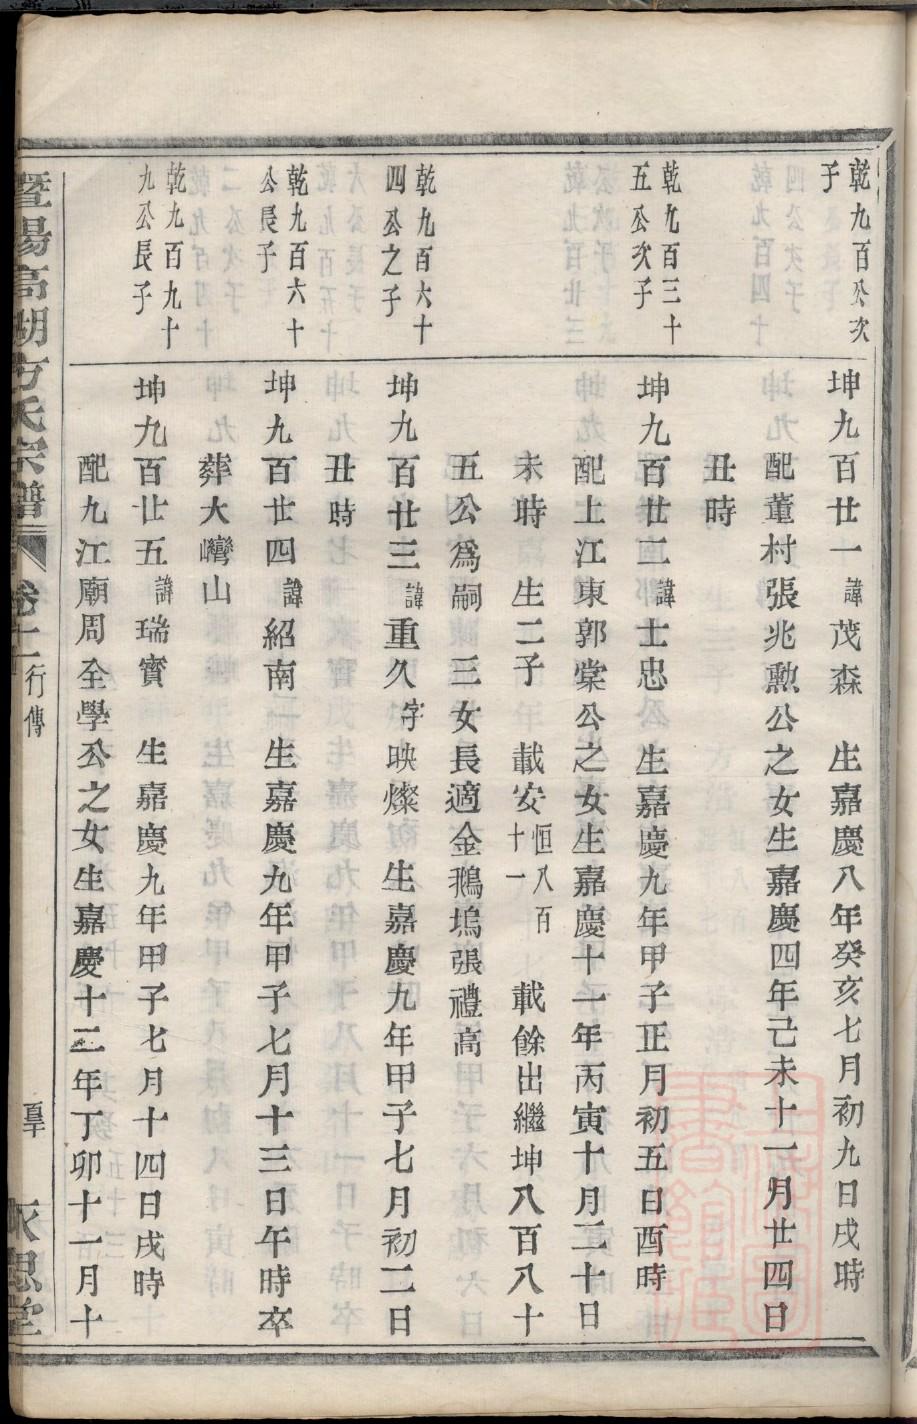 乾九百公次
子
坤九百廿一諱茂森　生嘉慶八年癸亥七月初九日戌時
配董村張兆勲公之女生嘉慶四年己未十一月廿四日
丑時
乾九百三十
五公次子
坤九百廿二諱士忠　生嘉慶九年甲子正月初五日酉時
配上江東郭棠公之女生嘉慶十一年丙寅十月二十日
未時　生二子　載安恒八百十一　載餘出繼坤八百八十
五公爲嗣　三女長適金鵝塢張禮高
乾九百六十
四公之子
坤九百廿三諱重久字映燦　生嘉慶九年甲子七月初二日
丑時
乾九百六十
公長子
坤九百廿四諱紹南　生嘉慶九年甲子七月十三日午時卒
葬大巒山
乾九百九十
九公長子
坤九百廿五諱瑞寶　生嘉慶九年甲子七月十四日戌時
配九江廟周全學公之女生嘉慶十二年丁卯十一月十
暨陽高湖方氏宗譜　卷十二　行傳　永思堂